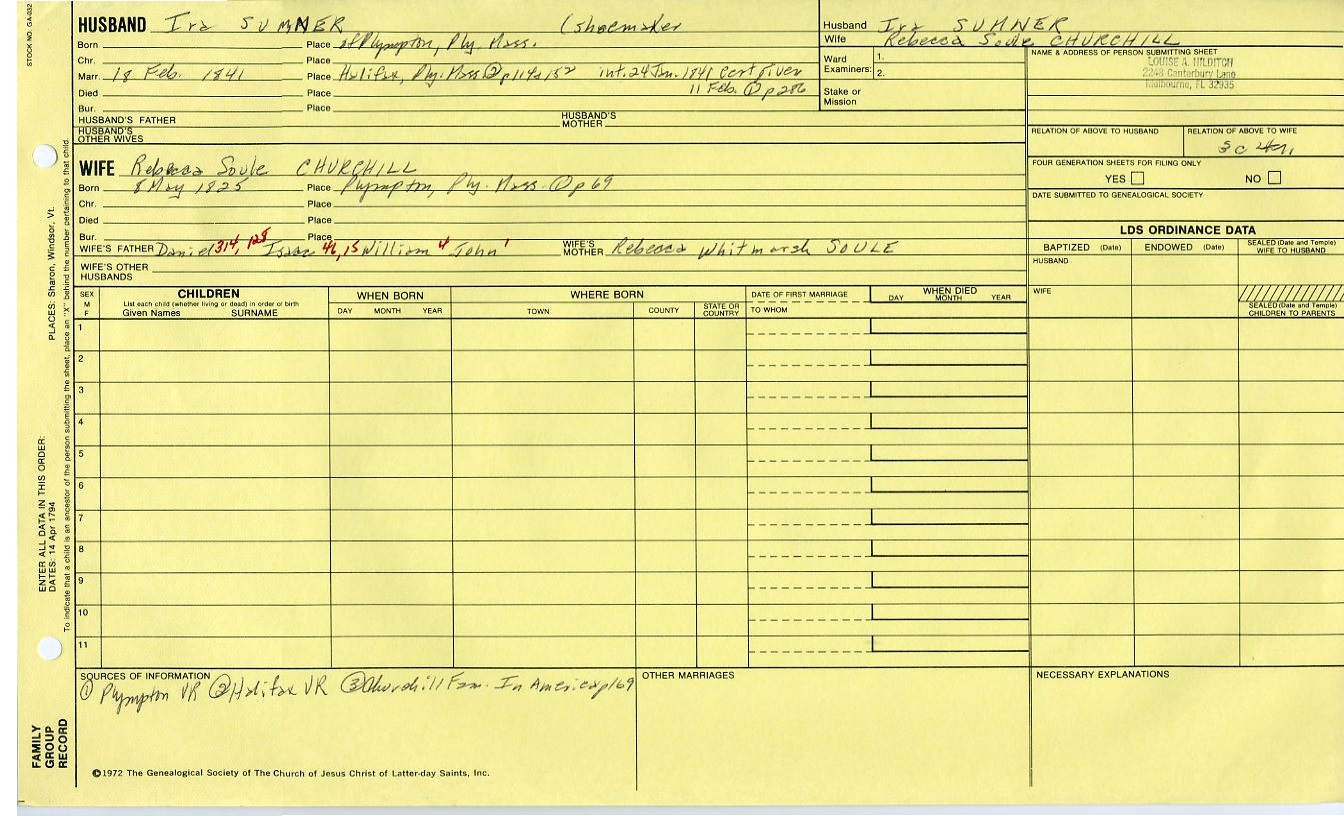 STOCK NO. GA-032
HUSBAND Ira SUMNER (shoemaker
Born Place of Plympton, Ply. Mass.
Chr. Place
Marr. 18 Feb. 1841 Place Halifax, Ply. Mass ② p114 & 152 int. 24 Jan. 1841 cert given
11 Feb. ① p 286
Died Place
Bur. Place
HUSBAND'S FATHER HUSBAND'S MOTHER
HUSBAND'S OTHER WIVES
Husband Ira SUMNER
Wife Rebecca Soule CHURCHILL
Ward Examiners: 1.
2.
Stake or Mission
NAME & ADDRESS OF PERSON SUBMITTING SHEET
LOUISE A. HILDITCH
2248 Canterbury Lane
Melbourne, FL 32935
RELATION OF ABOVE TO HUSBAND RELATION OF ABOVE TO WIFE
3c 4r
FOUR GENERATION SHEETS FOR FILING ONLY
YES NO
DATE SUBMITTED TO GENEALOGICAL SOCIETY
WIFE Rebecca Soule CHURCHILL
Born 8 May 1825 Place Plympton, Ply. Mass. ① p 69
Chr. Place
Died Place
Bur. Place
WIFE'S FATHER Daniel 314, 128 Isaac 46, 15 William 4 John 1 WIFE'S MOTHER Rebecca Whitmarsh SOULE
WIFE'S OTHER HUSBANDS
LDS ORDINANCE DATA
BAPTIZED (Date) ENDOWED (Date) SEALED (Date and Temple) WIFE TO HUSBAND
HUSBAND
WIFE
SEALED (Date and Temple) CHILDREN TO PARENTS
SEX M F
CHILDREN
List each child (whether living or dead) in order or birth
Given Names SURNAME
WHEN BORN
DAY MONTH YEAR
WHERE BORN
TOWN COUNTY STATE OR COUNTRY
DATE OF FIRST MARRIAGE
TO WHOM
WHEN DIED
DAY MONTH YEAR
1
2
3
4
5
6
7
8
9
10
11
SOURCES OF INFORMATION
① Plympton VR ② Halifax VR ③ Churchill Fam. In America p169
OTHER MARRIAGES
NECESSARY EXPLANATIONS
©1972 The Genealogical Society of The Church of Jesus Christ of Latter-day Saints, Inc.
FAMILY GROUP RECORD
ENTER ALL DATA IN THIS ORDER:
DATES: 14 Apr 1794
PLACES: Sharon, Windsor, Vt.
To indicate that a child is an ancestor of the person submitting the sheet, place an "X" behind the number pertaining to that child.